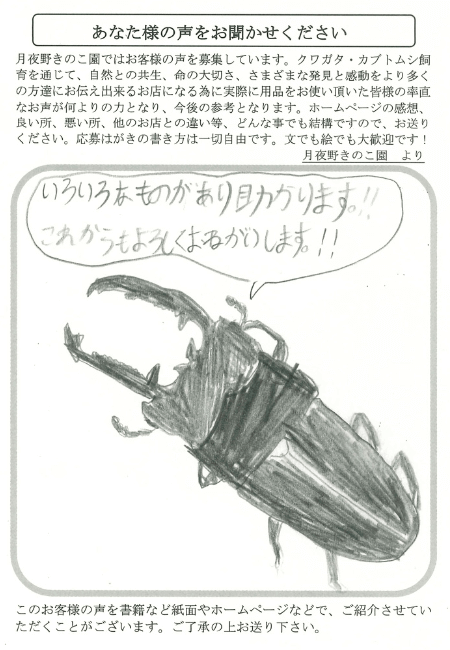 あなた様の声をお聞かせください
月夜野きのこ園ではお客様の声を募集しています。クワガタ・カブトムシ飼
育を通じて、自然との共生、命の大切さ、さまざまな発見と感動をより多く
の方達にお伝え出来るお店になる為に実際に用品をお使い頂いた皆様の率直
なお声が何よりの力となり、今後の参考となります。ホームページの感想、
良い所、悪い所、他のお店との違い等、どんな事でも結構ですので、お送り
ください。応募はがきの書き方は一切自由です。文でも絵でも大歓迎です！
月夜野きのこ園　より
いろいろなものがあり助かります。!!
これからもよろしくおねがいします。!!
このお客様の声を書籍など紙面やホームページなどで、ご紹介させてい
ただくことがございます。ご了承の上お送り下さい。